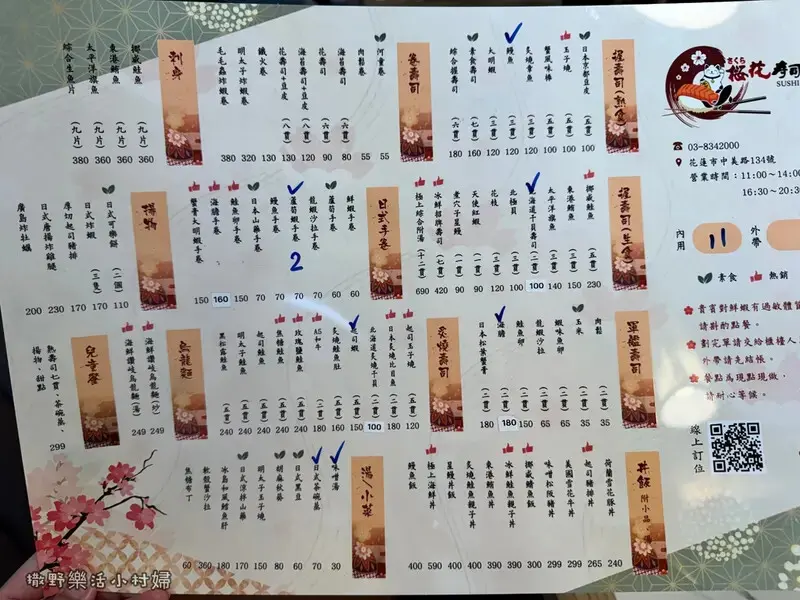 さくら
櫻花壽司
SUSHI
03-8342000
花蓮市中美路134號
營業時間：11:00~14:00
16:30~20:3
內用
11
外帶
素食
熱銷
貴賓對鮮蝦有過敏體
請斟酌點餐。
劃完單請交給櫃檯人
外帶請先結帳。
餐點為現點現做，
請耐心等候。
線上訂位
握壽司(熟食)
日本京都豆皮 (五貫) 100
玉子燒 (五貫) 100
蟹風味棒 (五貫) 100
炙燒章魚 (三貫) 120
鰻魚 (三貫) 120
大明蝦 (三貫) 120
素食壽司 (七貫) 160
綜合握壽司 (六貫) 180
卷壽司
河童卷 55
肉鬆卷 55
海苔壽司 (六貫) 80
花壽司 (六貫) 90
海苔壽司+豆皮 120
花壽司+豆皮 (八貫) 130
鐵火卷 130
明太子炸蝦卷 320
毛毛蟲炸蝦卷 380
刺身
挪威鮭魚 (九片) 360
東港鮪魚 (九片) 360
太平洋旗魚 (九片) 360
綜合生魚片 (九片) 380
握壽司(生食)
挪威鮭魚 (五貫) 230
東港鮪魚 (三貫) 150
太平洋旗魚 (三貫) 140
北海道干貝壽司 (二貫) 100
北極貝 (三貫) 100
花枝 (三貫) 120
天使紅蝦 (二貫) 90
煮穴子星鰻 (二貫) 90
冰鮮招牌壽司 (七貫) 420
極上綜合附湯 (十二貫) 690
日式手卷
鮮蝦手卷 60
龍蝦沙拉手卷 60
蘆筍蝦手卷 70
2
鰻魚手卷 70
日本山藥手卷 70
鮭魚卵手卷 150
海膽手卷 160
蟹膏大明蝦手卷 150
揚物
日式可樂餅 (二個) 110
日式炸蝦 (三隻) 170
厚切起司豬排 170
日式唐揚炸雞腿 230
廣島炸牡蠣 200
軍艦壽司
肉鬆 (二貫) 35
玉米 (二貫) 35
蝦味魚卵 (二貫) 65
龍蝦沙拉 (二貫) 65
鮭魚卵 (二貫) 150
海膽 (二貫) 180
日本松葉蟹膏 (二貫) 180
炙燒壽司
起司玉子燒 (五貫) 120
日本炙燒比目魚 (三貫) 180
北海道炙燒干貝 (二貫) 100
起司蝦 150
炙燒鮭魚肚 (五貫) 160
A5和牛 180
玫瑰鹽鮭魚 (五貫) 240
焦糖鮭魚 (五貫) 240
起司鮭魚 (五貫) 240
明太子鮭魚 (五貫) 240
黑松露鮭魚 (五貫) 240
烏龍麵
海鮮讚岐烏龍麵(炒) 249
海鮮讚岐烏龍麵(湯) 249
兒童餐
熟壽司七貫、茶碗蒸、
揚物、甜點
299
丼飯 附小品、湯
荷蘭雪花豚丼 240
起司豬排丼 265
美國雪花牛丼 299
味噌松阪豬丼 299
挪威鮭魚飯 300
冰鮮鮭魚親子丼 390
東港鮪魚丼 390
炙燒鮭魚親子丼 390
星鰻丼飯 400
極上海鮮丼 590
鰻魚飯 400
湯/小菜
味噌湯 30
日式茶碗蒸 70
日式黑豆 60
胡麻秋葵 80
明太子玉子燒 250
日式涼拌山藥 150
冰島和風鱈魚肝 180
軟殼蟹沙拉 360
焦糖布丁 60
撒野樂活小村婦